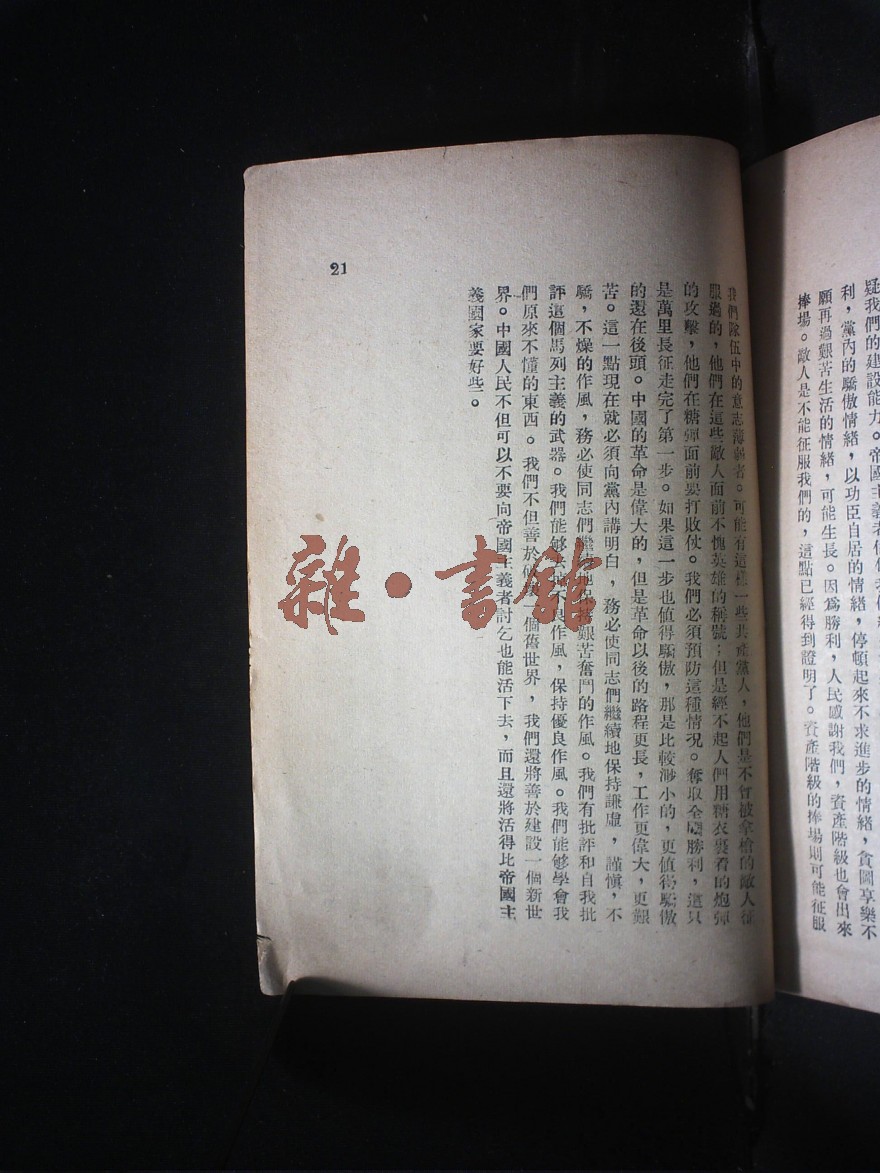 疑我們的建設能力。帝國主義者
利，黨內的驕傲情緒，以功臣自居的情緒，停頓起來不求進步的情緒，貪圖享樂不
願再過艱苦生活的情緒，可能生長。因爲勝利，人民感謝我們，資產階級也會出來
捧場。敵人是不能征服我們的，這點已經得到證明了。資產階級的捧場則可能征服
我們隊伍中的意志薄弱者。可能有這樣一些共產黨人，他們是不曾被拿槍的敵人征
服過的，他們在這些敵人面前不愧英雄的稱號；但是經不起人們用糖衣裹着的炮彈
的攻擊，他們在糖彈面前要打敗仗。我們必須預防這種情況。奪取全國勝利，這只
是萬里長征走完了第一步。如果這一步也值得驕傲，那是比較渺小的，更值得驕傲
的還在後頭。中國的革命是偉大的，但是革命以後的路程更長，工作更偉大，更艱
苦。這一點現在就必須向黨內講明白，務必使同志們繼續地保持謙虛，謹愼，不
驕，不燥的作風，務必使同志們繼續地保持艱苦奮鬥的作風。我們有批評和自我批
評這個馬列主義的武器。我們能够去掉不良作風，保持優良作風。我們能够學會我
們原來不懂的東西。我們不但善於破壞一個舊世界，我們還將善於建設一個新世
界。中國人民不但可以不要向帝國主義者討乞也能活下去，而且還將活得比帝國主
義國家要好些。
21
雜·書館